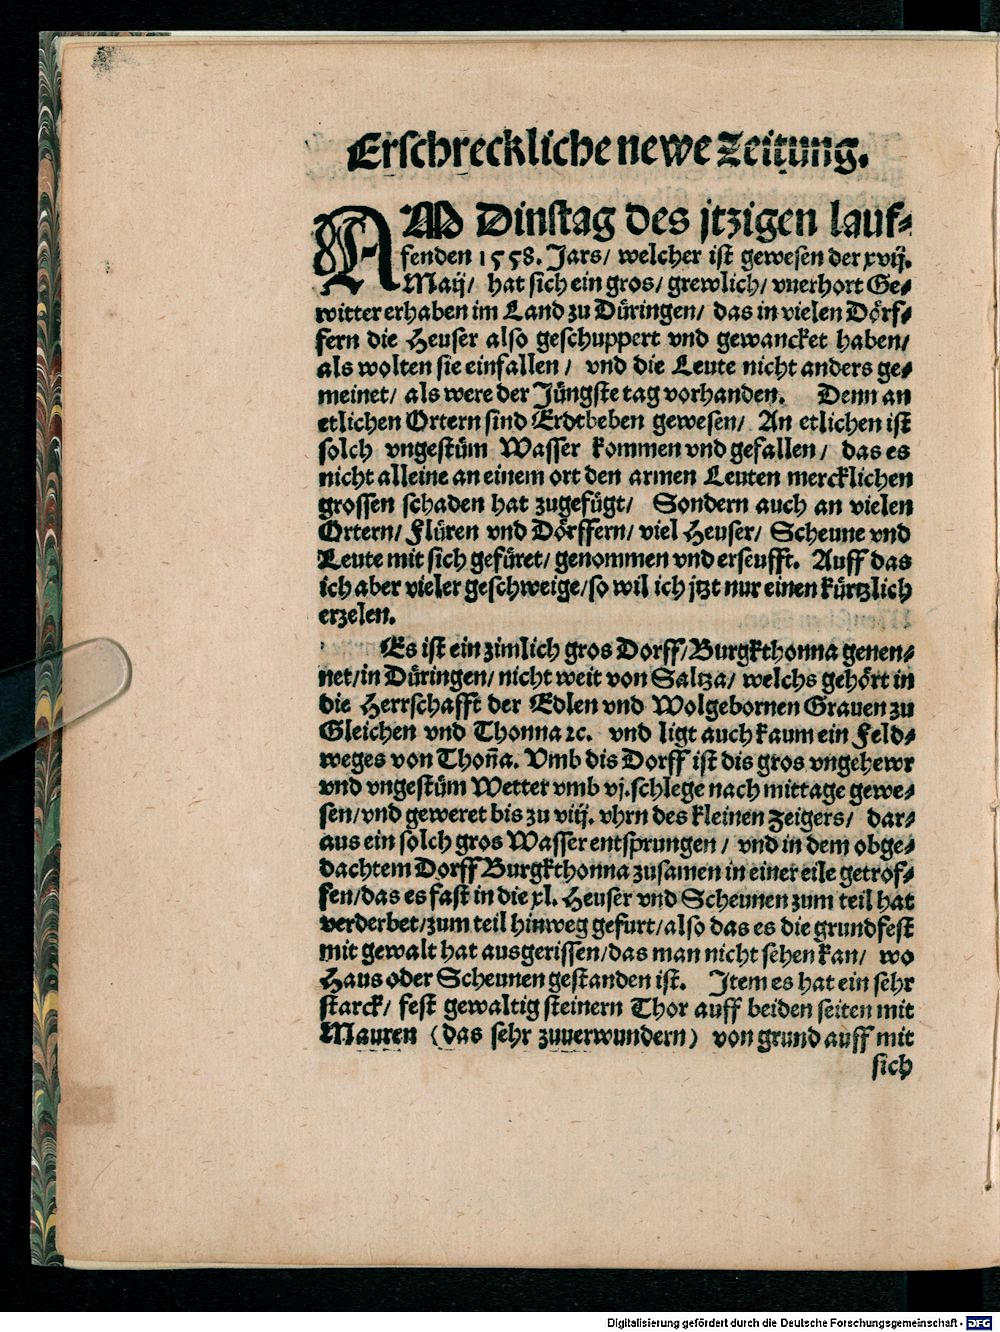 Erschreckliche newe Zeitung.
AM Dinstag des jtzigen lauf-
fenden 1558. Jars/ welcher ist gewesen der xvij.
Maij/ hat sich ein gros/ grewlich/ vnerhort Ge-
witter erhaben im Land zu Düringen/ das in vielen Dörf-
fern die Heuser also geschuppert vnd gewancket haben/
als wolten sie einfallen/ vnd die Leute nicht anders ge-
meinet/ als were der Jüngste tag vorhanden. Denn an
etlichen Ortern sind Erdtbeben gewesen/ An etlichen ist
solch vngestüm Wasser kommen vnd gefallen/ das es
nicht alleine an einem ort den armen Leuten mercklichen
grossen schaden hat zugefügt/ Sondern auch an vielen
Ortern/ Flüren vnd Dörffern/ viel Heuser/ Scheune vnd
Leute mit sich gefüret/ genommen vnd erseufft. Auff das
ich aber vieler geschweige/ so wil ich jtzt nur einen kürtzlich
erzelen.
Es ist ein zimlich gros Dorff/ Burgkthonna genen-
net/ in Düringen/ nicht weit von Saltza/ welchs gehört in
die Herrschafft der Edlen vnd Wolgebornen Grauen zu
Gleichen vnd Thonna ꝛc. vnd ligt auch kaum ein Feld-
weges von Thoña. Vmb dis Dorff ist dis gros vngehewr
vnd vngestüm Wetter vmb vj. schlege nach mittage gewe-
sen/ vnd geweret bis zu viij. vhrn des kleinen Zeigers/ dar-
aus ein solch gros Wasser entsprungen/ vnd in dem obge-
dachtem Dorff Burgkthonna zusamen in einer eile getrof-
fen/ das es fast in die xl. Heuser vnd Scheunen zum teil hat
verderbet/ zum teil hinweg gefurt/ also das es die grundfest
mit gewalt hat ausgerissen/ das man nicht sehen kan/ wo
Haus oder Scheunen gestanden ist. Item es hat ein sehr
starck/ fest gewaltig steinern Thor auff beiden seiten mit
Mauren (das sehr zuuerwundern) von grund auff mit
sich
Digitalisierung gefördert durch die Deutsche Forschungsgemeinschaft - DFG